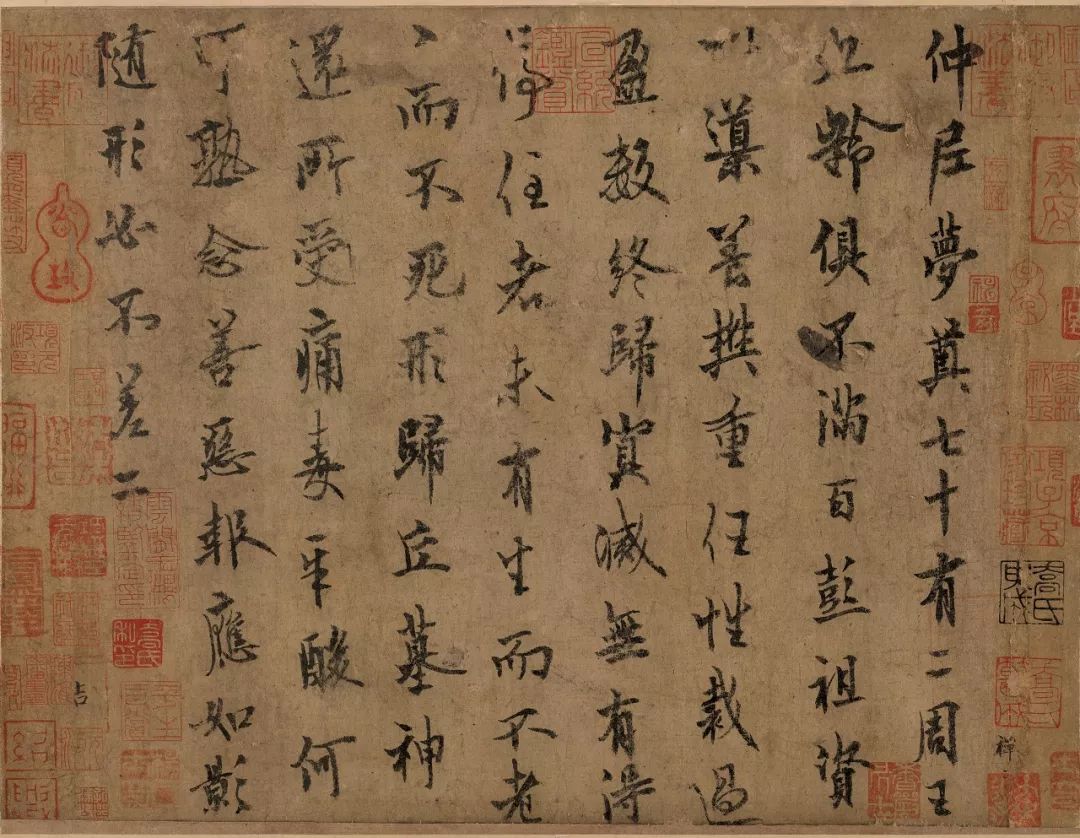 禪
仲尼夢奠七十有二周王
九齡俱不滿百彭祖資
以導養樊重任性裁過
盈數終歸冥滅無有得
停住者未有生而不老
〻而不死形歸丘墓神
還所受痛毒辛酸何
可熟念善惡報應如影
隨形必不差二
吉